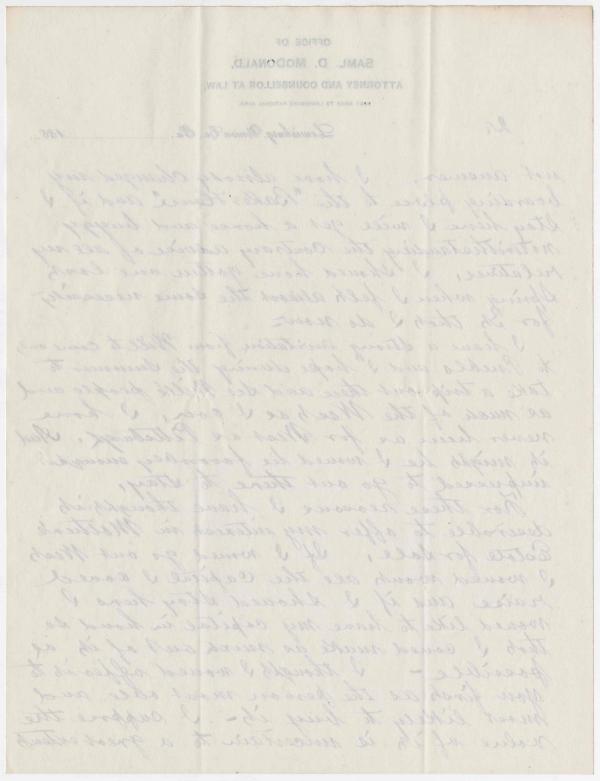 OFFICE OF
SAML. D. McDONALD,
ATTORNEY AND COUNSELLOR AT LAW,
Lewisburg, Union Co. Pa. 188
not answer. I have already changed my
boarding place to the "Baker House" and if I
stay here I will get a horse and buggy
notwithstanding the contrary advice of all my
relatives, I should have gotten one last
Spring when I felt about the same necessity
for it that I do now.
I have a strong invitation from Will to come on
to Pueblo and I hope during the Summer to
take a trip out there and see Will's people and
as much of the West as I can, I have
never been as far West as Pittsburg. And
it might be I would be favorably enough
impressed to go out there to stay.
For these reasons I have thought it
desirable to offer my interest in
Estate for sale, If I would go out West
I would want all the capital I could
raise and if I should stay here I
would like to have my capital in hand so
that I could make as much out of it as
possible - I thought I would offer it to
you first as the person most able and
most likely to buy it - I suppose the
value of it is uncertain to a great extent